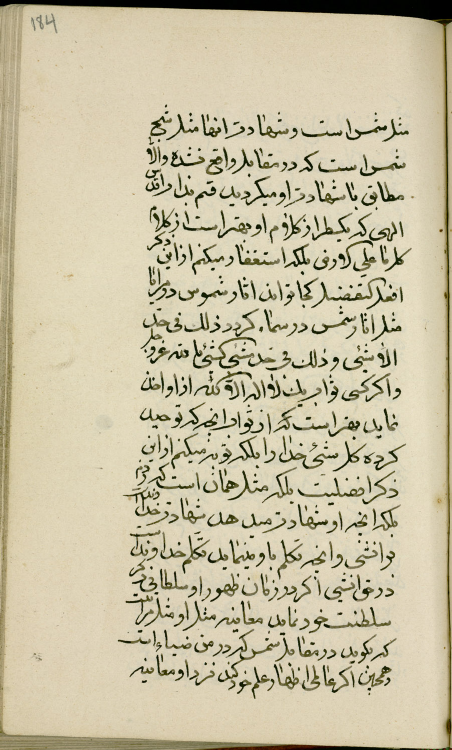 184
مثل شمس است و شهادت انها مثل شبح
شمس است که در مقابل واقع شده والا
مطابق با شهادت او میکردید قسم بذات اقدس
الهی که یکسطر از کلام او بهتر است از کلام
کل ما علی الارض بلکه استغفار میکنم از این ذکر
افعل تفضیل کجا تواند اثار شموس در مرایا
مثل اثار شمس در سماء کردد ذلک فی حد
الاشیئی و ذلک فی حد مشیئی الشیئی بالله عز و جل
و اگر کسی ثواب یک لا اله الا الله از او اخذ
نماید بهتر است که از ثواب انچه که توحید
کرده کل شیئی خدا را بلکه توبه میکنم از این
ذکر افضلیت بلکه مثل همان است که ذکر شد
بلکه انچه او شهادت میدهد شهادت خداوند است
در انشیئی و انچه تکلم باو مینماید تکلم خداوند است
در حق انشیئی اگر در زمان ظهور او سلطانی ذکر
سلطنت خود نماید معاینه مثل او مثل مرآتیست
که بگوید در مقابل شمس که در من ضیاء است
و همچنین اگر عالمی اظهار علم خود کند نزد او معاینه